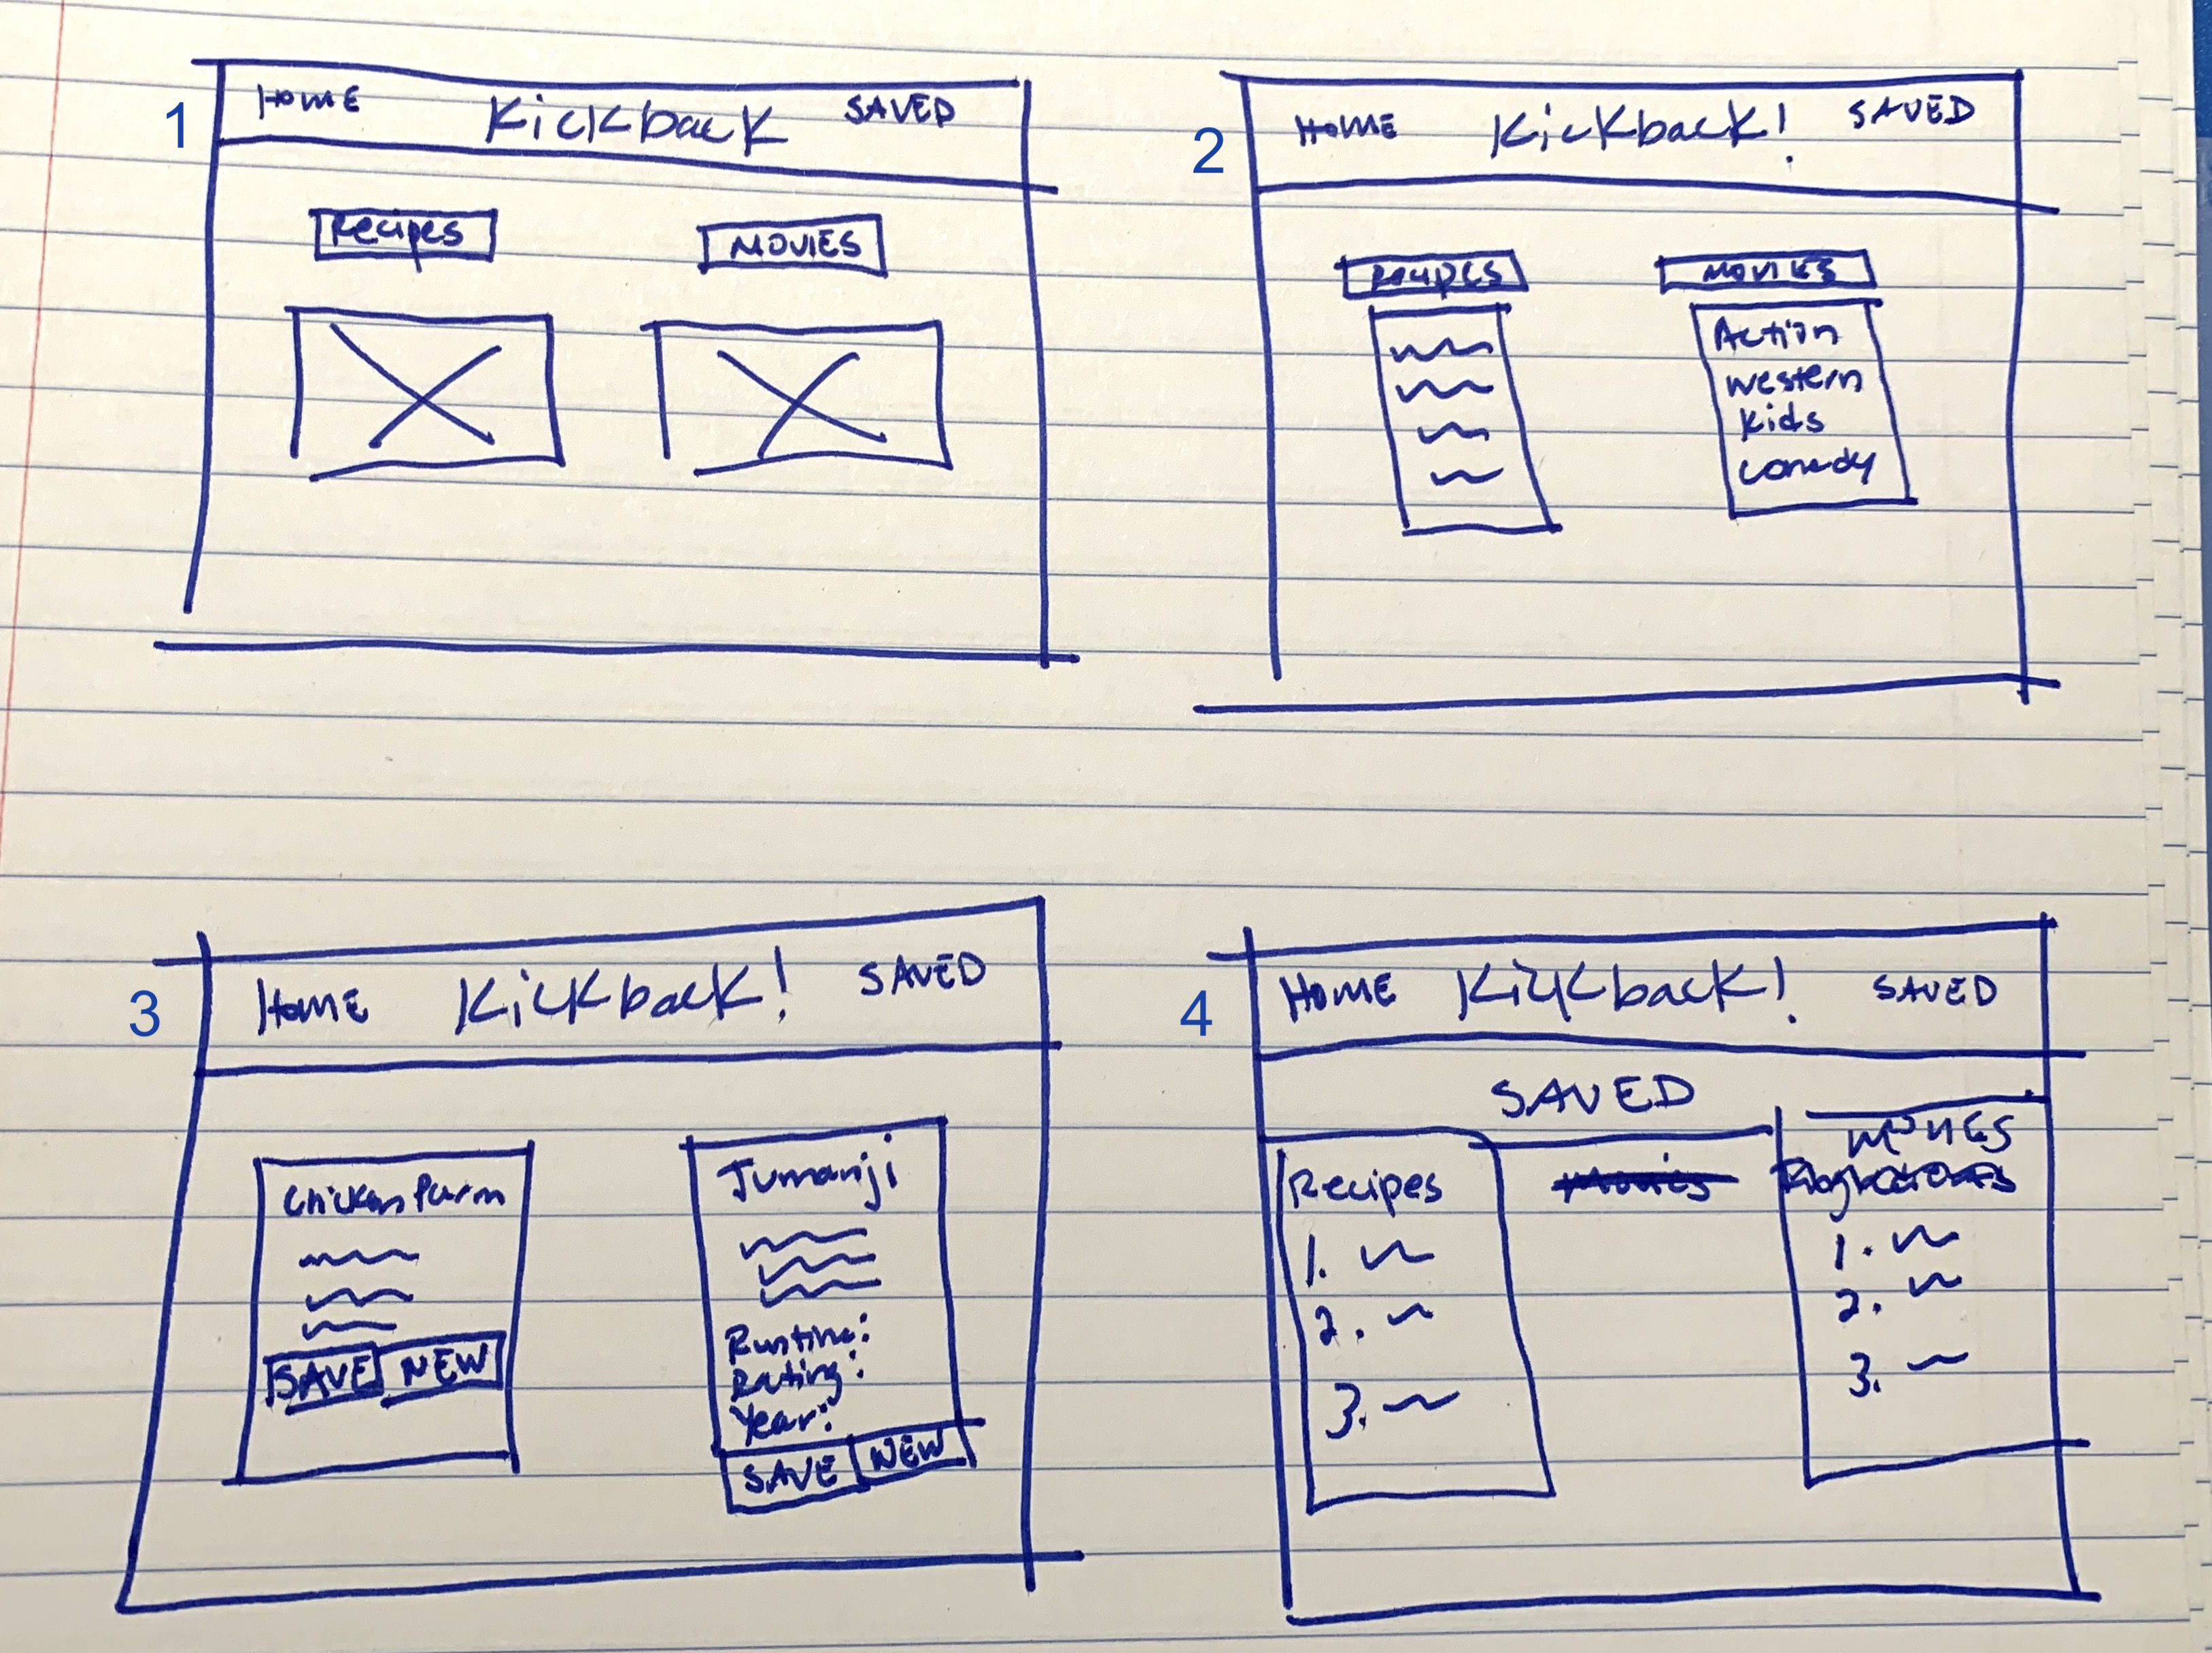 1
HOME Kickback SAVED
Recipes MOVIES
2
HOME Kickback! SAVED
Recipes MOVIES
Action
western
Kids
comedy
3
HOME Kickback! SAVED
Chicken Parm
SAVE NEW
Jumanji
Runtime:
Rating:
Year:
SAVE NEW
4
HOME Kickback! SAVED
SAVED
Recipes
1.
2.
3.
Movies
MOVIES
1.
2.
3.